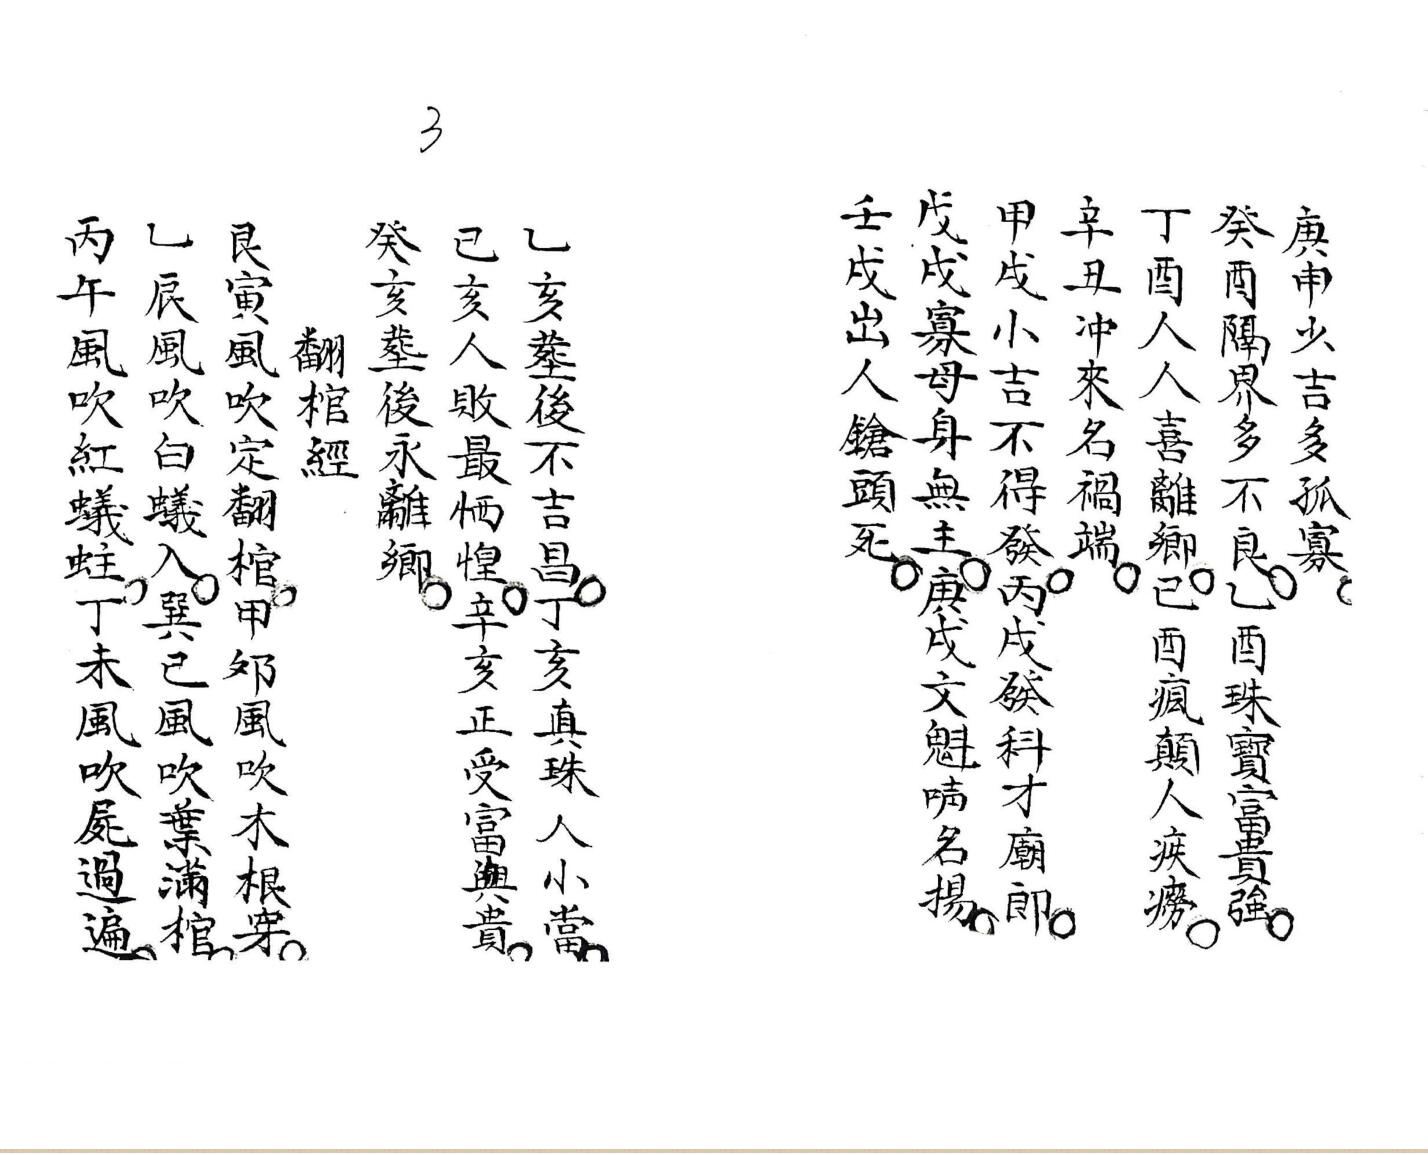 庚申少吉多孤寡
癸酉隔界多不良乙酉珠寶富貴強
丁酉人人喜離鄉己酉瘋顛人疾癆
辛丑冲來名禍端
甲戌小吉不得發丙戌發科才廟郎
戊戌寡母身無主庚戌文魁啨名揚
壬戌出人鎗頭死
3
乙亥塟後不吉昌丁亥真珠人小當
己亥人敗最恓惶辛亥正受富與貴
癸亥塟後永離鄉
翻棺經
艮寅風吹定翻棺甲夘風吹木根穿
乙辰風吹白蟻入巽巳風吹葉滿棺
丙午風吹紅蟻蛀丁未風吹屍過遍